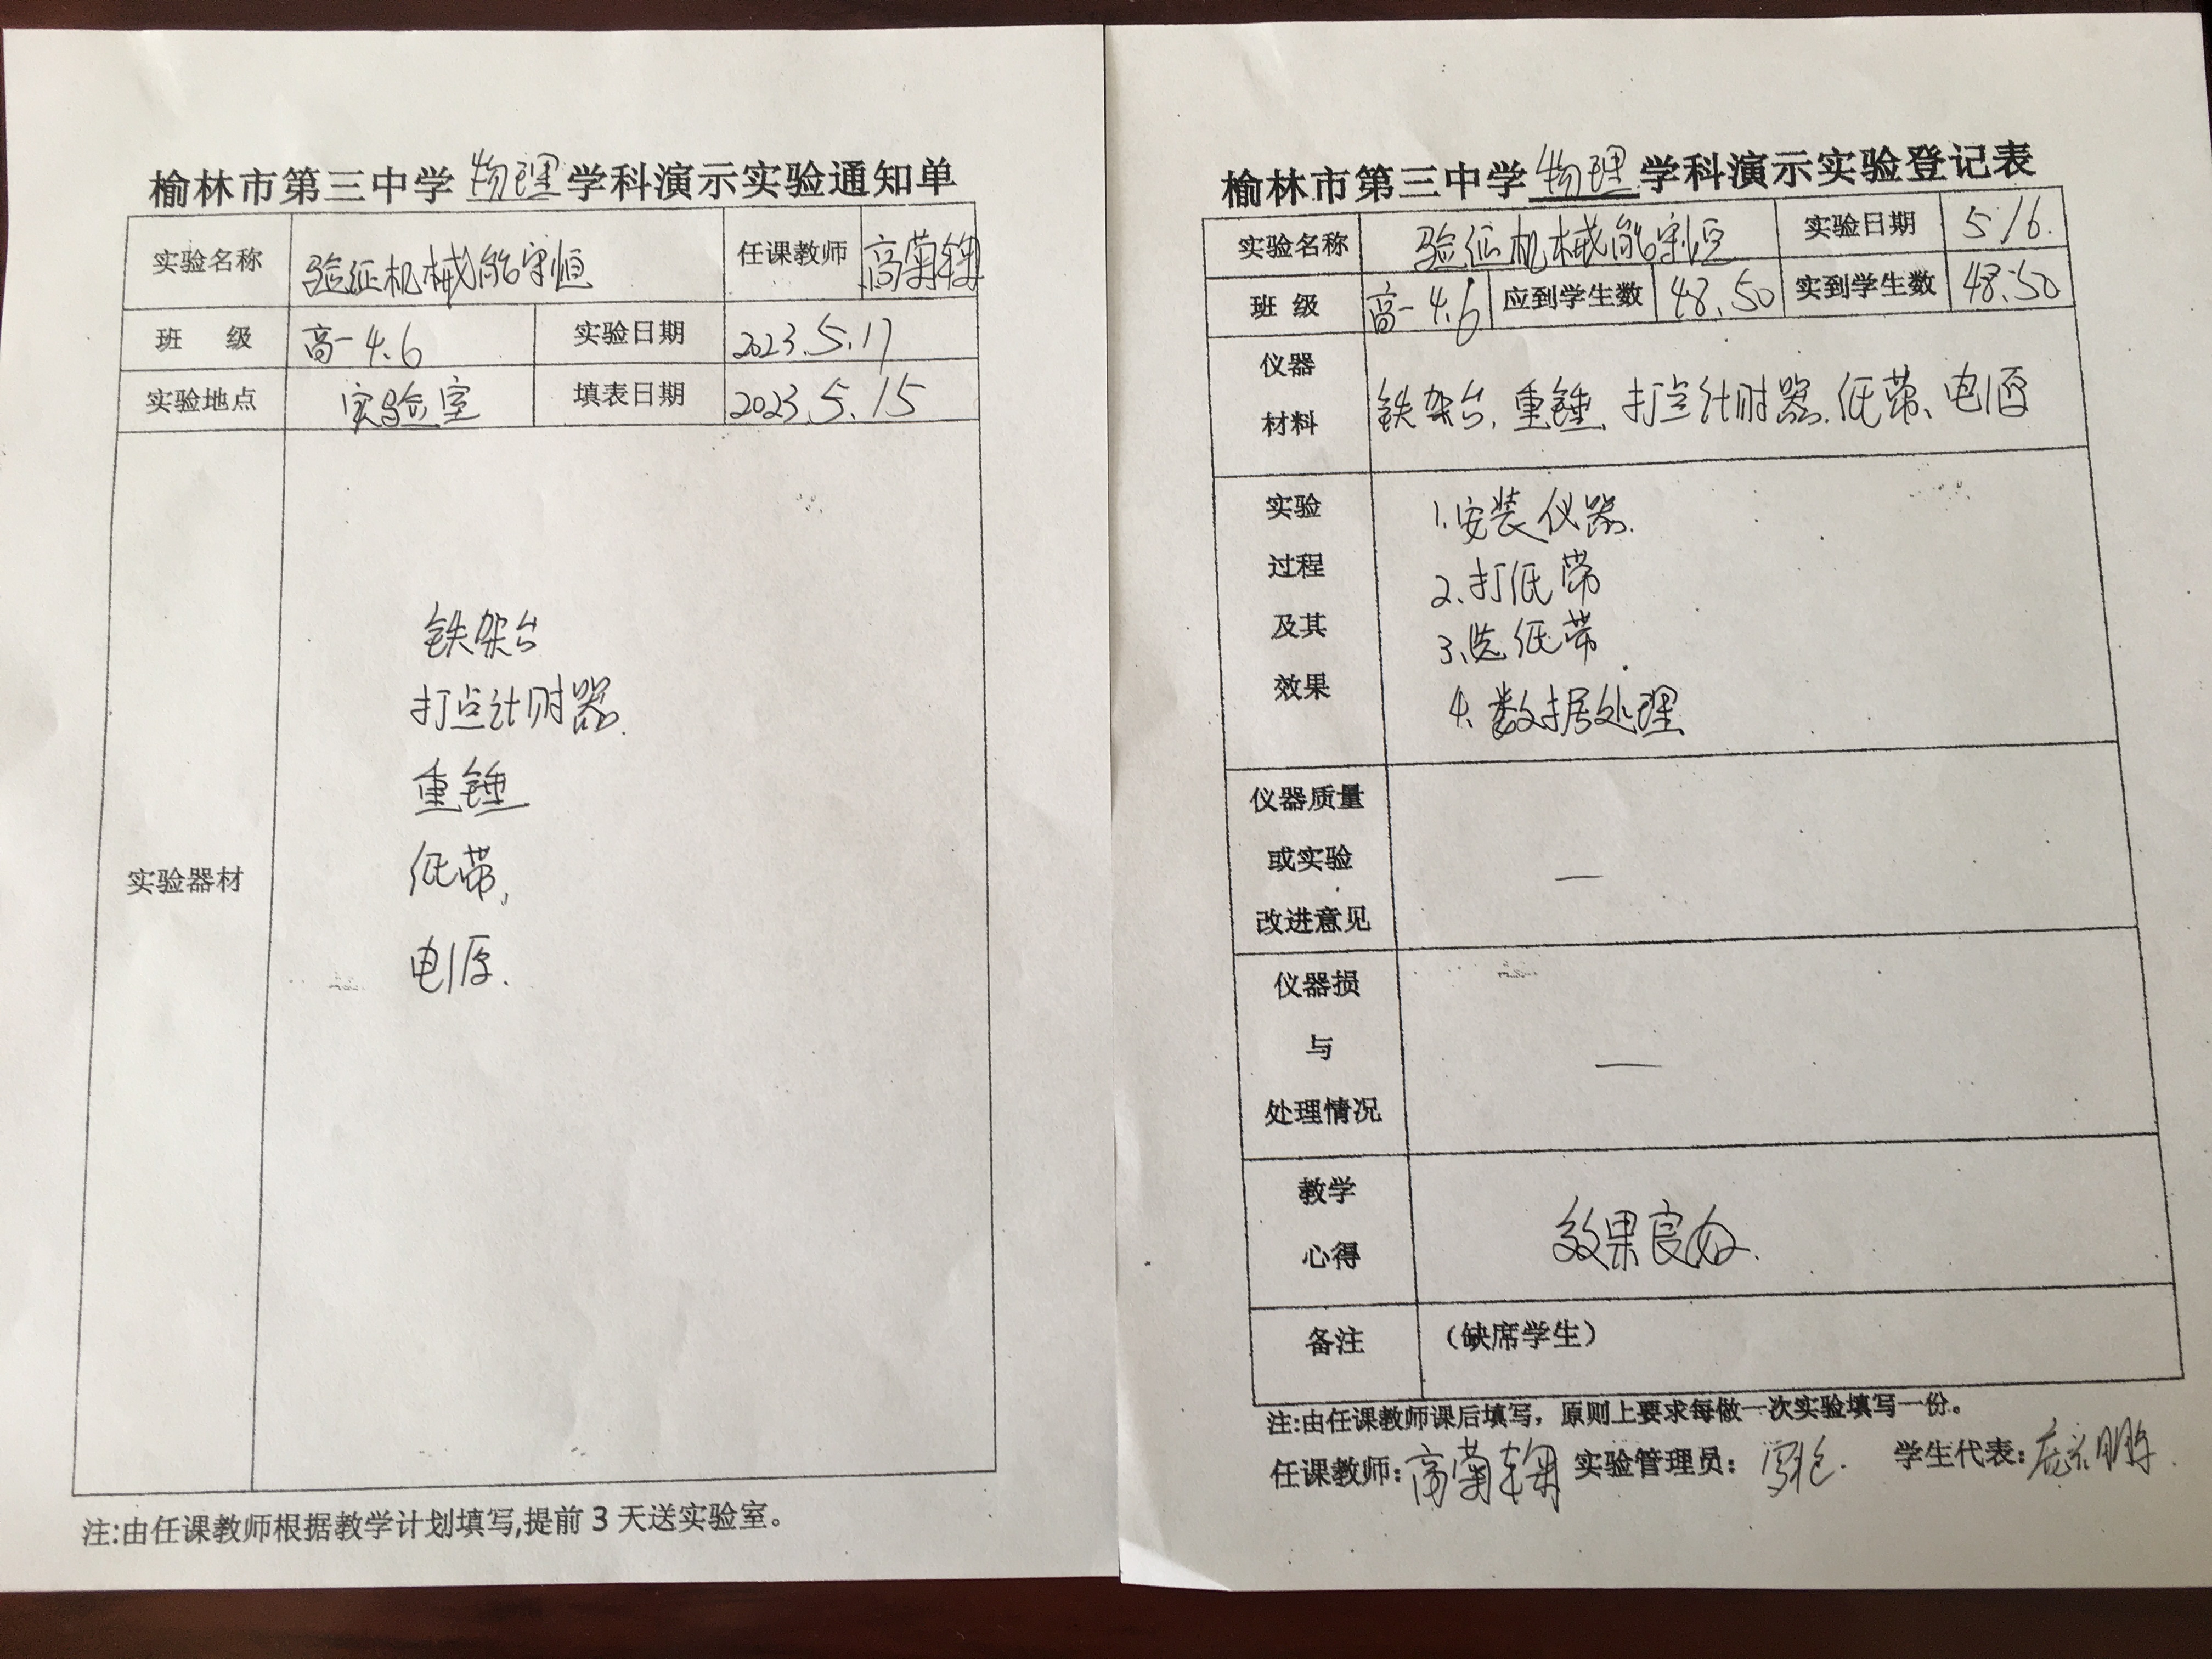 榆林市第三中学物理学科演示实验通知单
实验名称 验证机械能守恒 任课教师 高菊
班 级 高一4.6 实验日期 2023.5.17
实验地点 实验室 填表日期 2023.5.15
实验器材
铁架台
打点计时器.
重锤
纸带,
电源.
注:由任课教师根据教学计划填写,提前3天送实验室。
榆林市第三中学物理学科演示实验登记表
实验名称 验证机械能守恒 实验日期 5/6.
班 级 高一4.6 应到学生数 48.50 实到学生数 48.50
仪器
材料
铁架台,重锤、打点计时器.纸带、电源
实验
过程
及其
效果
1.安装仪器.
2.打纸带
3.选纸带
4.数据处理
仪器质量
或实验
改进意见
—
仪器损
与
处理情况
—
教学
心得
效果良好.
备注 (缺席学生)
注:由任课教师课后填写，原则上要求每做一次实验填写一份。
任课教师:高菊 实验管理员: 学生代表: